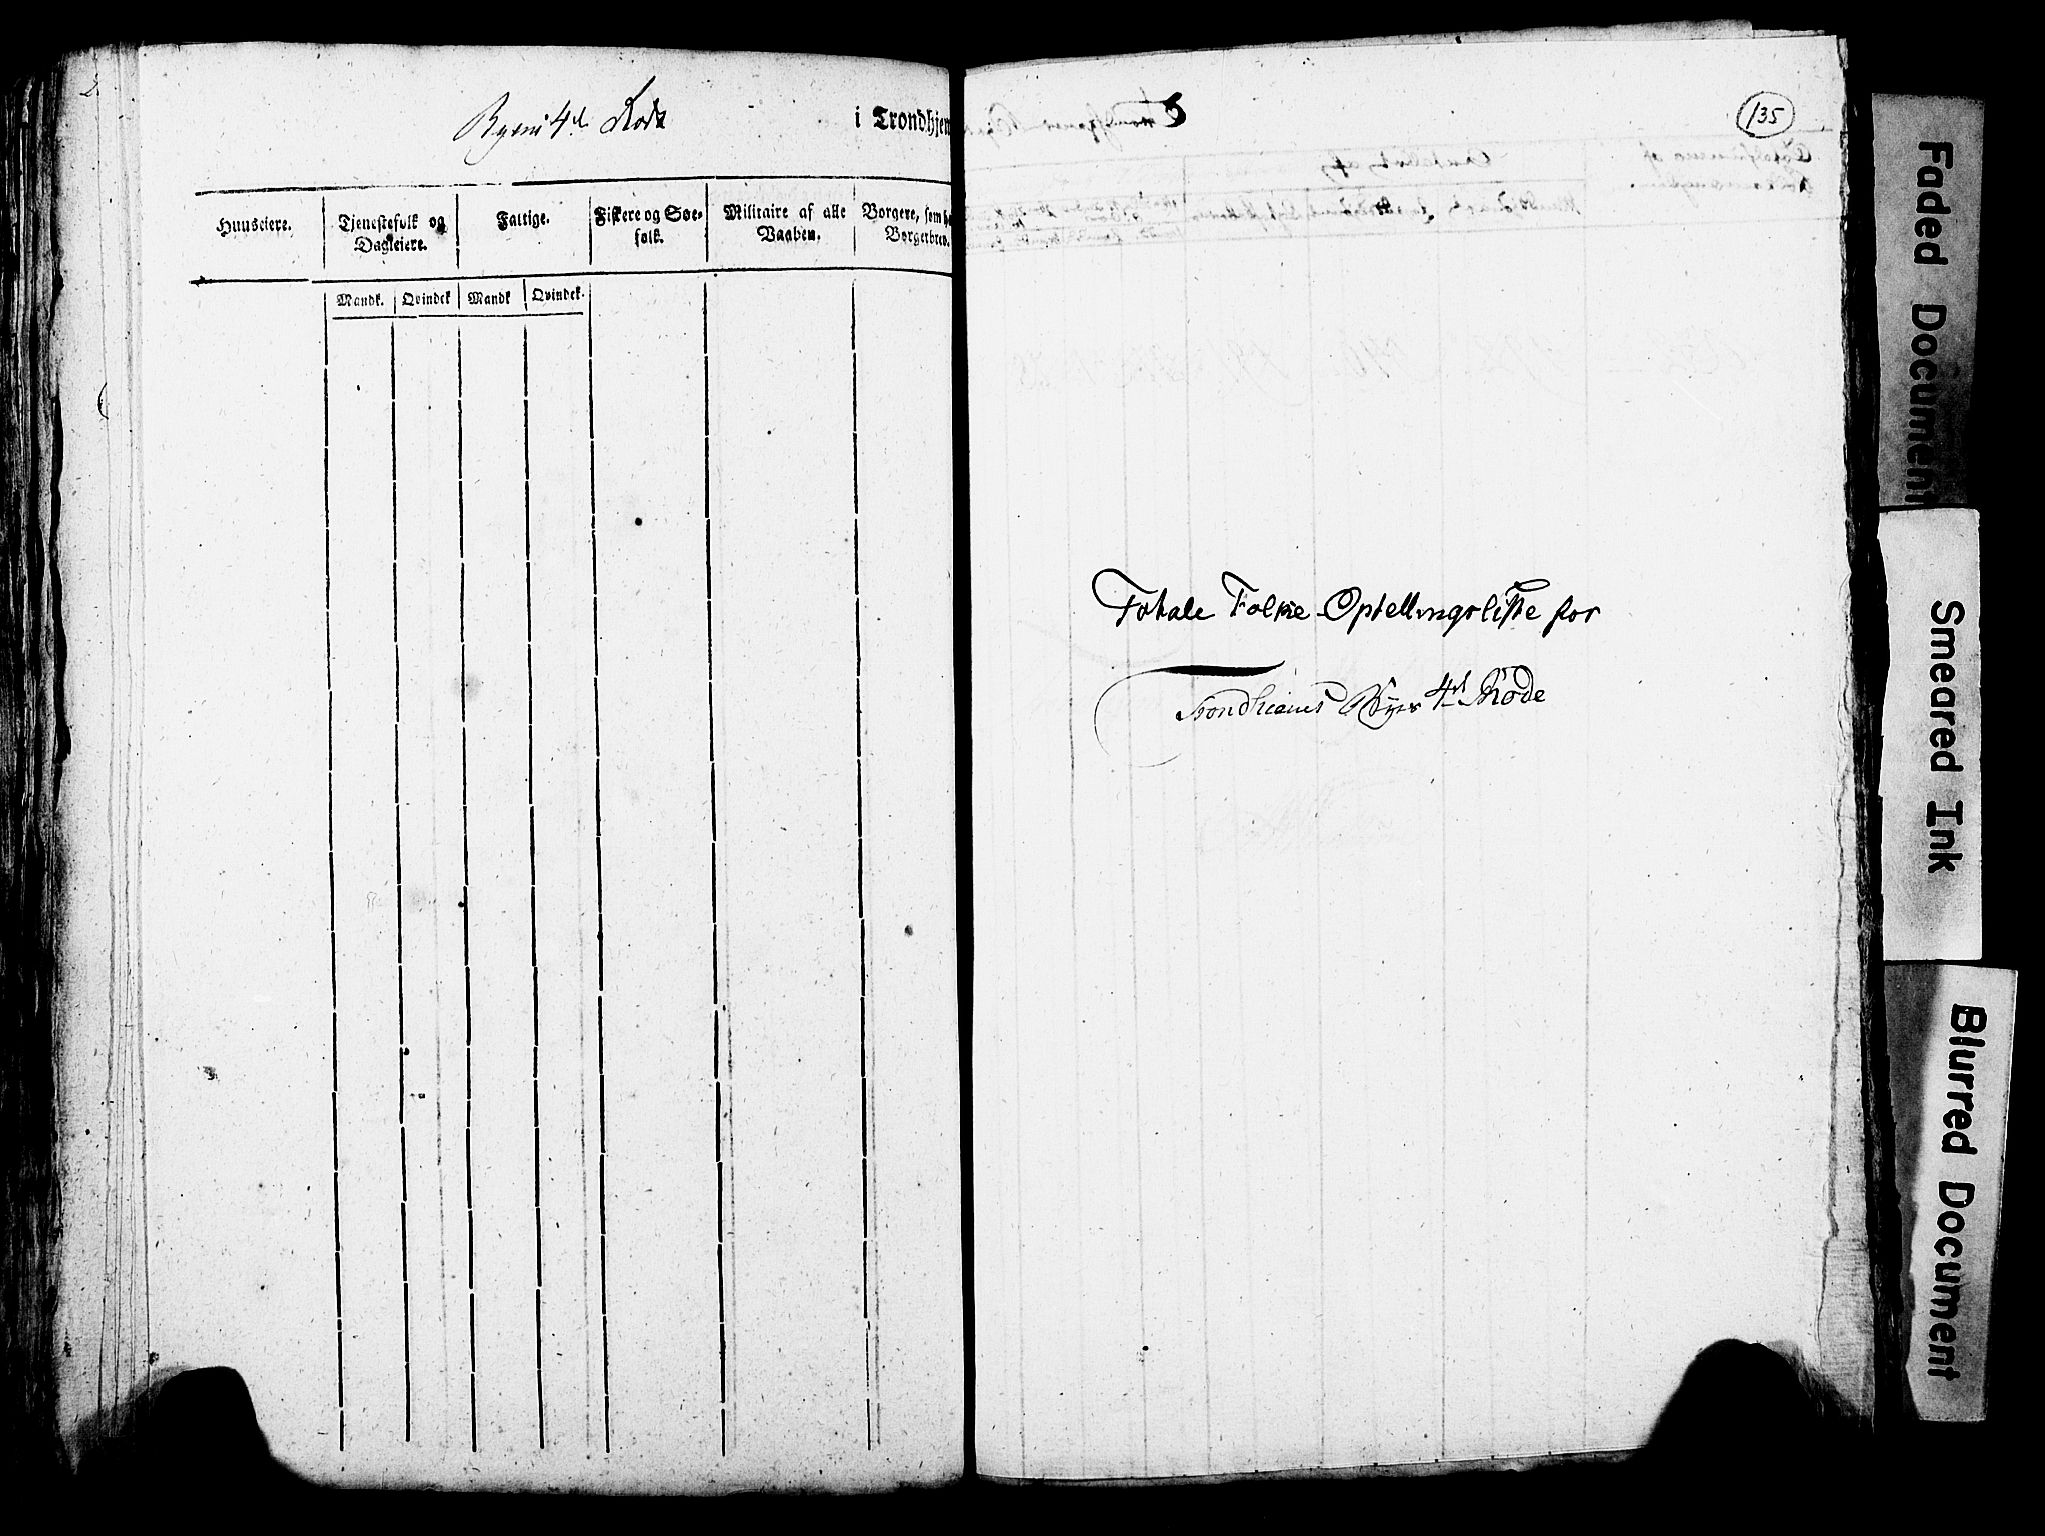 Byens 4de Rode i Trondhjem
Huuseiere.
Tjenestefolk og
Dagleiere.
Fattige.
Fiskere og Søe-
folk.
Militaire af alle
Vaaben.
Borgere, som ha
Borgerbrev.
Mandk. Qvindek Mandk Qvindek.
135
Totale Folke Optellingsliste for
Trondhiems Byes 4de Rode
Faded Document
Smeared Ink
Blurred Document